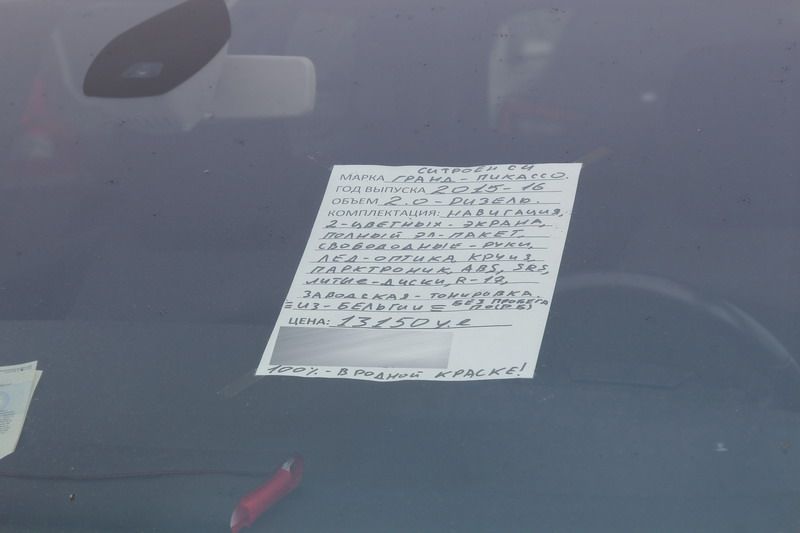 СИТРОЕН С4
МАРКА ГРАНД-ПИКАССО.
ГОД ВЫПУСКА 2015-16
ОБЪЕМ 2.0-ДИЗЕЛЬ.
КОМПЛЕКТАЦИЯ: НАВИГАЦИЯ,
2-ЦВЕТНЫХ-ЭКРАНА,
ПОЛНЫЙ ЭЛ-ПАКЕТ,
СВОБОДОДНЫЕ-РУКИ,
ЛЕД-ОПТИКА, КРУИЗ,
ПАРКТРОНИК, ABS, SRS,
ЛИТИЕ-ДИСКИ, R-19,
ЗАВОДСКАЯ-ТОНИРОВКА
=ИЗ-БЕЛЬГИИ= БЕЗ ПРОБЕГА ПО(РБ)
ЦЕНА: 13150 у.е
100%-В РОДНОЙ КРАСКЕ!